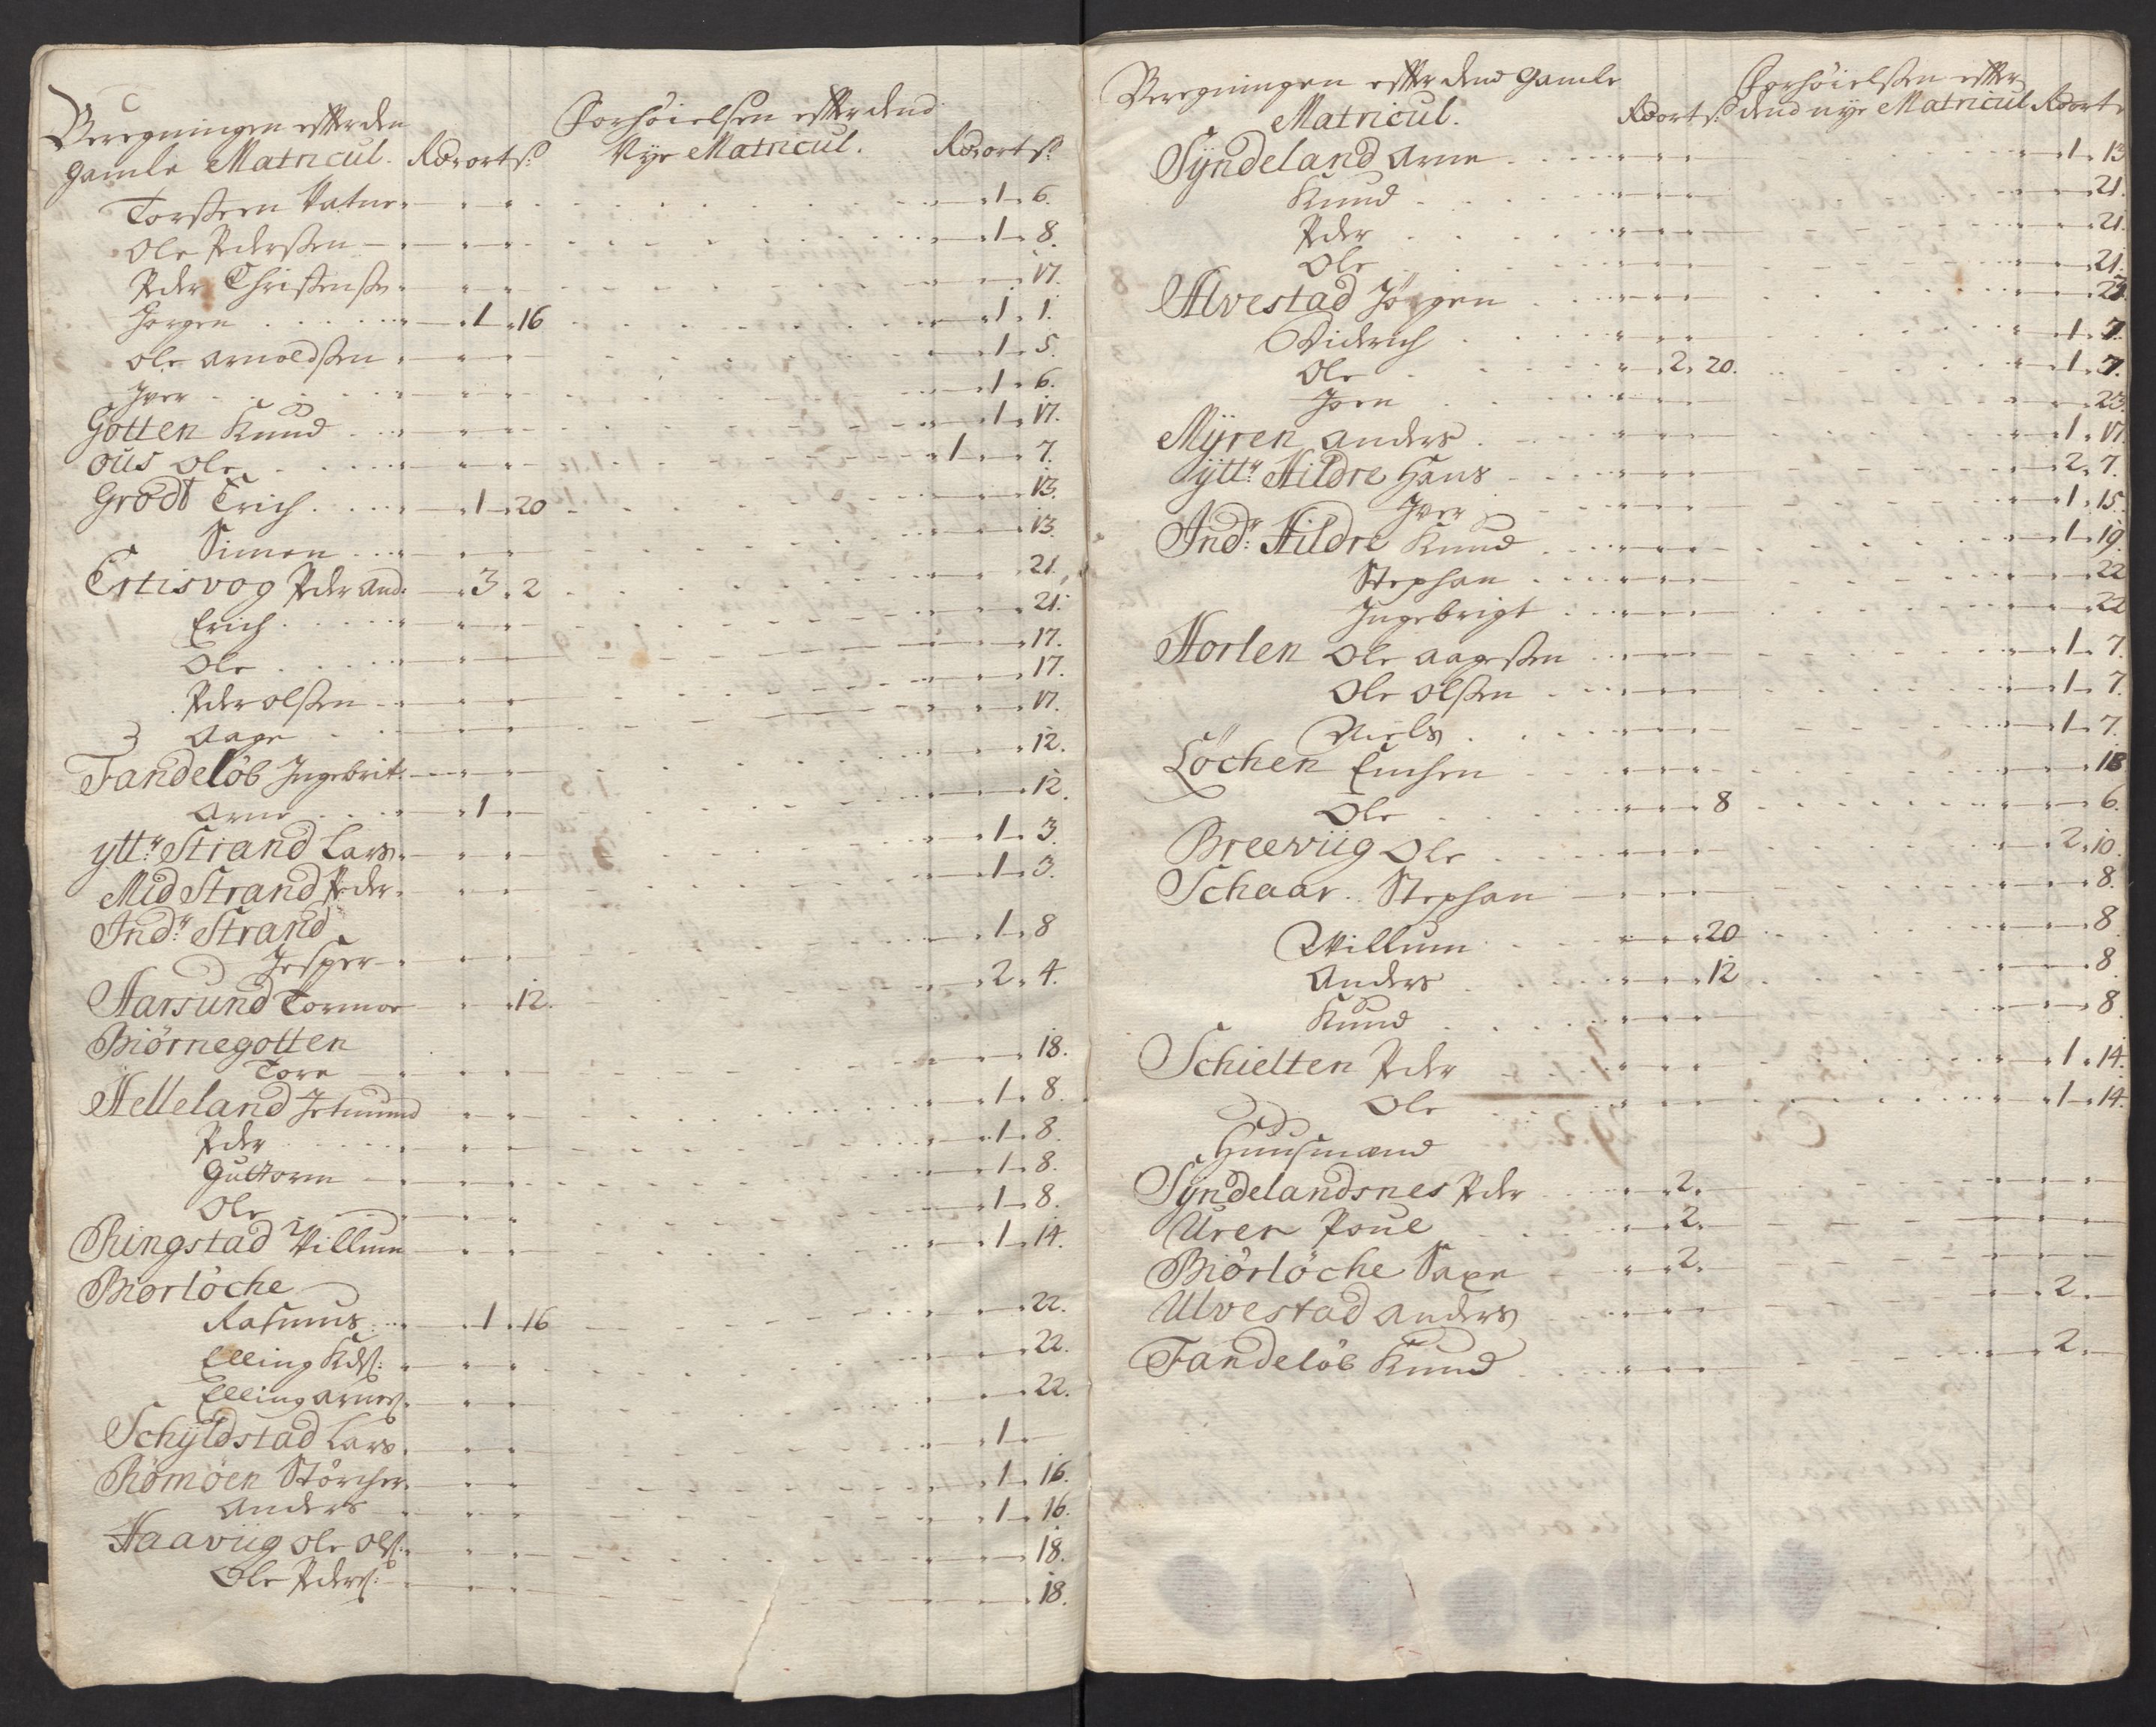 Beregningen effter den
gamle Matricul. Rdr ort s:
Forhøielsen effter dend
Nye Matricul. Rdr ort s:
Torsteen Vatne 1 6.
Ole Pedersen 1 8.
Peder Christensen 17.
Jørgen 1 16 1 1.
Ole Arnoldsen 1 5.
Iver 1 6.
Gotten Knud 1 17.
ous Ole 1 7.
Grodt Erich 1 20 13.
Simen 13.
Ertisvog Peder And: 3 2 21.
Erich 21.
Ole 17.
Peder Olsen 17.
Aage 17.
Fandeløb Ingebrit 12.
Arne 1 12.
ytt:r Strand Lars 1 3.
Mid Strand Peder 1 3.
Ind:r Strand
Jesper 1 8
Aarsund Tormoe 12. 2 4.
Biørnegotten
Tore 18.
Helleland Jetmund 1 8.
Peder 1 8.
Guttorm 1 8.
Ole 1 8.
Ringstad Villum 1 14.
Biørløche
Rasmus 1 16 22.
Elling Kds: 22.
Elling Arnes: 22.
Schyldstad Lars 1
Rømøen Størcher 1 16.
Anders 1 16.
Haaviig Ole Ols: 18.
Ole Peders: 18.
Beregningen effter dend gamle
Matricul. Rdr ort s:
Forhøielsen effter
dend nye Matricul Rdr ort s
Syndeland Arne 1 13
Knud 21.
Peder 21.
Ole 21.
Alvestad Jørgen
Diderich 1 7.
Ole 2 20. 1 7.
Joen 23.
Myren Anders 1 17
ytt:r Hildre Hans 2 7.
Iver 1 15.
Ind:r Hildre Knud 1 19.
Stephan 22
Ingebrigt 22
Horlen Ole Aagesen 1 7.
Ole Olsen 1 7.
Niels 1 7.
Løchen Einchen 18
Ole 8 6.
Breeviig Ole 2 10.
Schaar Stephan 8.
Willum 20 8.
Anders 12 8.
Knud 8
Schielten Peder 1 14.
Ole 1 14.
Huusmænd
Syndelandsnes Peder 2
Uren Poul 2
Biørløche Saxe 2
Ulvestad Anders 2
Fandeløb Knud 2